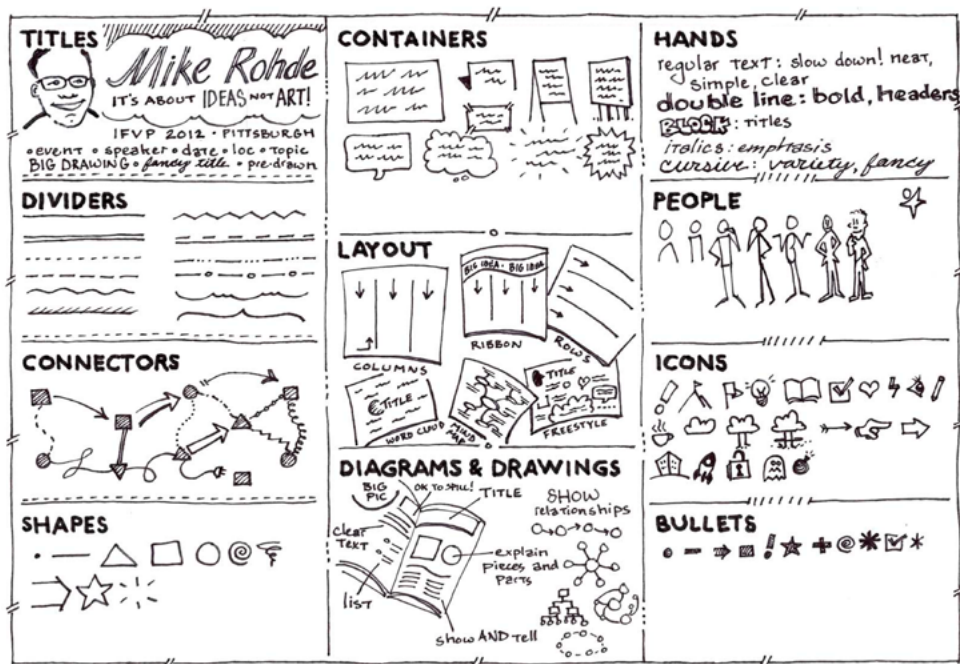 TITLES
Mike Rohde
IT'S ABOUT IDEAS NOT ART!
IFVP 2012 • PITTSBURGH
• event • speaker • date • loc • topic
BIG DRAWING • fancy title • pre-drawn
DIVIDERS
CONNECTORS
SHAPES
CONTAINERS
LAYOUT
COLUMNS
BIG IDEA • BIG IDEA
RIBBON
ROWS
TITLE
WORD CLOUD
MIND MAP
TITLE
FREESTYLE
DIAGRAMS & DRAWINGS
BIG PIC
OK TO SPILL!
TITLE
clear TEXT
list
explain
pieces and
parts
show AND tell
SHOW
relationships
HANDS
regular text: slow down! neat,
simple, clear
double line: bold, headers
BLOCK: titles
italics: emphasis
cursive: variety, fancy
PEOPLE
ICONS
BULLETS